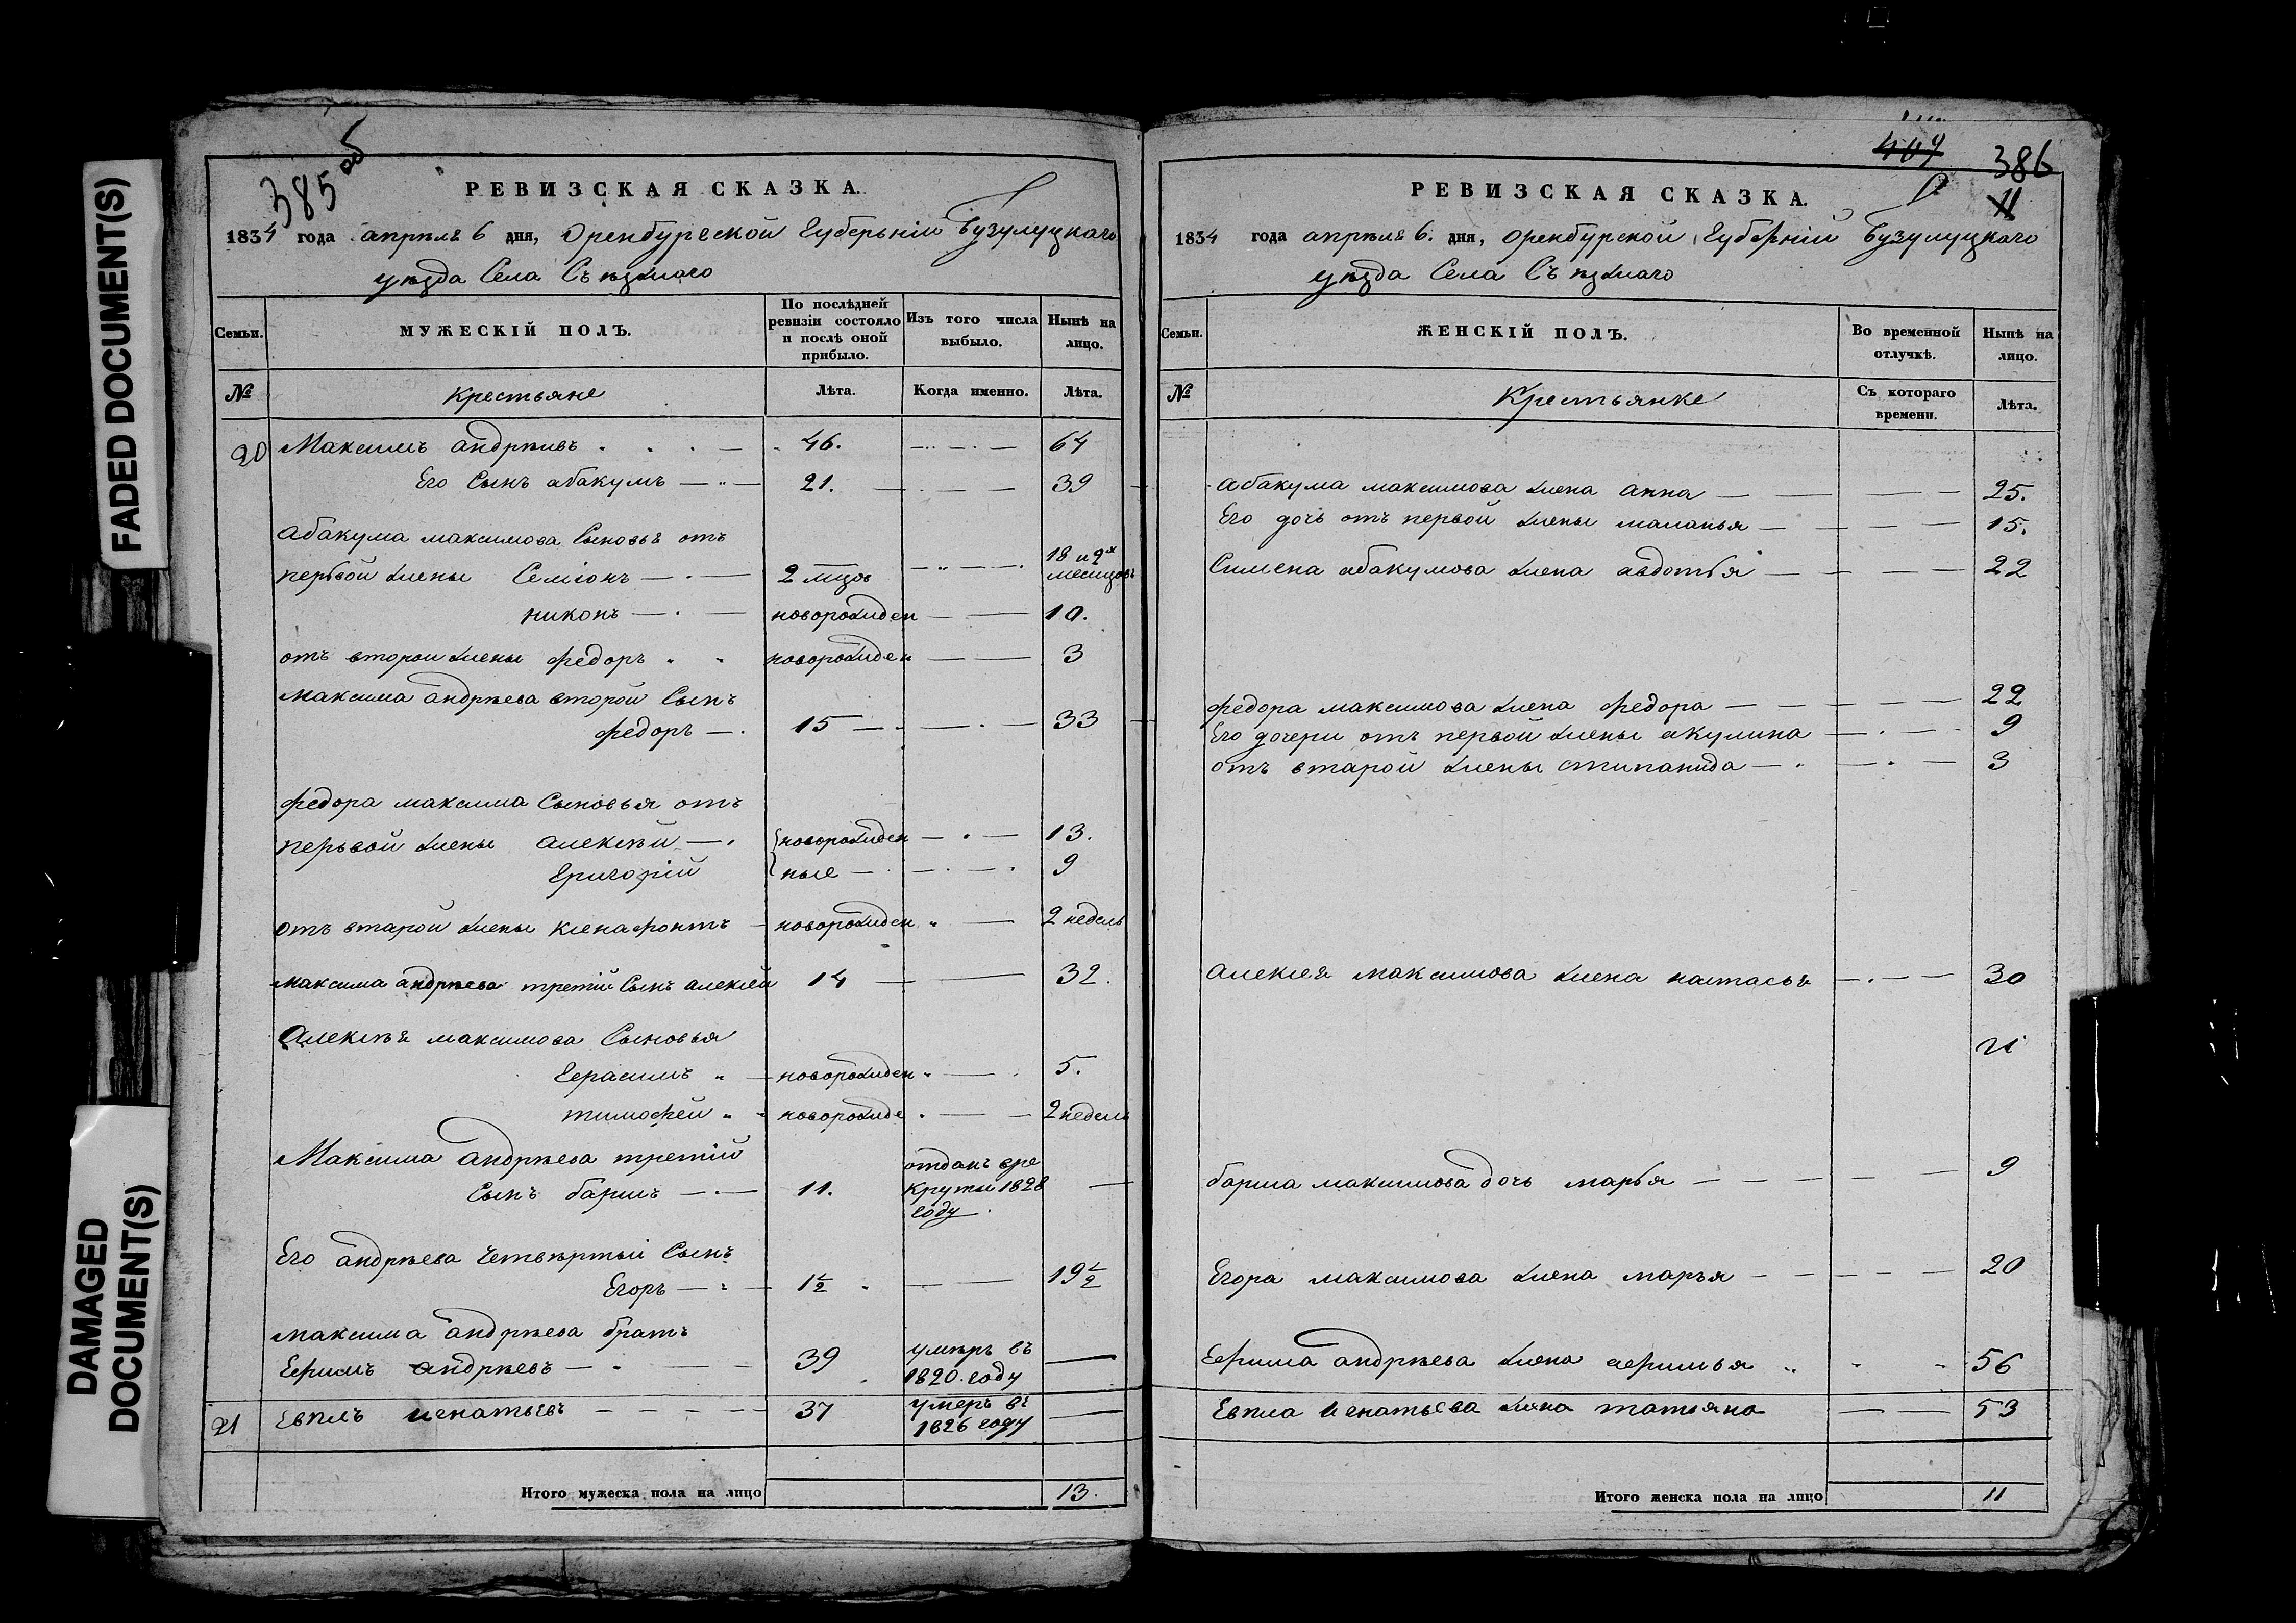 FADED DOCUMENT(S)
DAMAGED
DOCUMENT(S)
385 об
РЕВИЗСКАЯ СКАЗКА.
1834 года апреля 6 дня, Оренбургской Губернiи Бузулуцкаго
уѣзда Села Съѣзжаго
Семьи. МУЖЕСКIЙ ПОЛЪ. По послѣдней ревизiи состояло и послѣ оной прибыло. Изъ того числа выбыло. Нынѣ на лицо.
№ Крестьяне Лѣта. Когда именно. Лѣта.
20 Максимъ андрѣивъ 46. 64
Его Сынъ абакумъ 21. 39
абакума максимова Сыновья отъ
первой жены Семiонъ 2 мцов 18 и 2х месяцовъ
никонъ новорожден 10.
отъ второй жены федоръ новорожден 3
максима андрѣева второй Сынъ
федоръ 15 33
федора максима Сыновья отъ
перьвой жены алексѣй новорожден 13.
Григорiй ные 9
отъ второй жены ксенафонтъ новорожден 2 недель
максима андрѣева третiй Сынъ алексей 14 32.
Алексѣя максимова Сыновья
Герасимъ новорожден 5.
тимофей новорожде 2 недель
Максима андрѣева третiй отданъ вре
Сынъ барисъ 11. круты 1828
году
Его андрѣева Четвѣртый Сынъ
Егоръ 1 1/2 19 1/2
максима андрѣева братъ
Ефимъ андрѣевъ 39 умѣръ въ 1820. году
21 Евплъ игнатьевъ 37 умеръ въ 1826 году
Итого мужеска пола на лицо 13.
409 386
11
РЕВИЗСКАЯ СКАЗКА.
1834 года апрѣля 6. дня, Оренбурской Губернiй Бузулуцкаго
уѣзда Села Съѣзжаго
Семьи. ЖЕНСКIЙ ПОЛЪ. Во временной отлучкѣ. Нынѣ на лицо.
№ Крестьянке Съ котораго времени. Лѣта.
абакума максимова жена анна 25.
Его дочь отъ первой жены маланья 15.
Симена абакумова жена авдотья 22
федора максимова жена федора 22
Его дочери отъ первой жены акулина 9
отъ второй жены стипанида 3
алексея максимова жена настасья 30
бариса максимова дочь марья 9
Егора максимова жена марья 20
Ефима андрѣева жена афимья 56
Евпла игнатьева жена татьяна 53
Итого женска пола на лицо 11